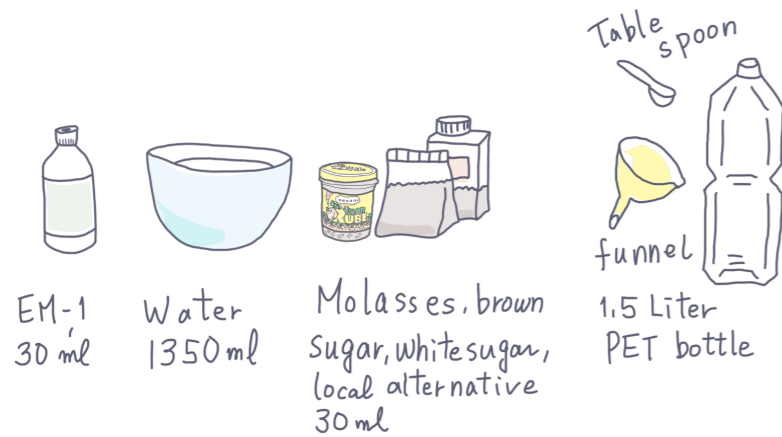 Table
spoon
funnel
EM-1
30 ml
Water
1350ml
Molasses, brown
sugar, white sugar,
local alternative
30ml
1.5 Liter
PET bottle